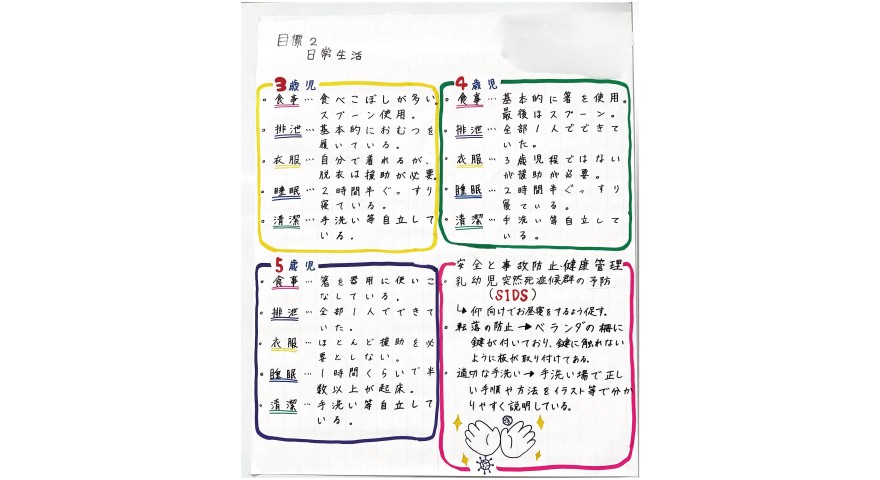 目標2
日常生活
3歳児
・食事…食べこぼしが多い。
スプーン使用。
・排泄…基本的におむつを
履いている。
・衣服…自分で着れるが、
脱衣は援助が必要。
・睡眠…2時間半ぐっすり
寝ている。
・清潔…手洗い等自立して
いる。
4歳児
・食事…基本的に箸を使用。
最後はスプーン。
・排泄…全部1人でできて
いた。
・衣服…3歳児程ではない
が援助が必要。
・睡眠…2時間半ぐっすり
寝ている。
・清潔…手洗い等自立して
いる。
5歳児
・食事…箸を器用に使いこ
なしている。
・排泄…全部1人でできて
いた。
・衣服…ほとんど援助を必
要としない。
・睡眠…1時間くらいで半
数以上が起床。
・清潔…手洗い等自立して
いる。
安全と事故防止・健康管理
・乳幼児突然死症候群の予防
(SIDS)
↳仰向けでお昼寝をするよう促す。
・転落の防止→ベランダの柵に
鍵が付いており、鍵に触れない
ように板が取り付けてある。
・適切な手洗い→手洗い場で正し
い手順や方法をイラスト等で分か
りやすく説明している。